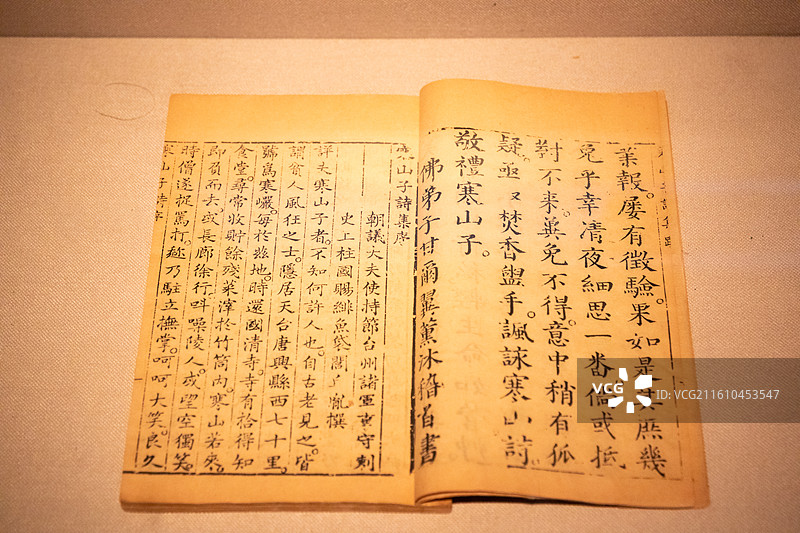 山子詩集跋
業報。屢有徵驗。果如是其庶幾
免乎幸清夜細思一番儒或抵
對不来冀免不得。意中稍有狐
疑。亟又焚香盥手。諷誦寒山詩
敬禮寒山子。
佛弟子甘爾翼薰沐稽首書
寒山子詩集序
朝議大夫使持節台州諸軍事守刺
史上柱國賜緋魚袋閭丘胤撰
詳夫寒山子者。不知何許人也。自古老見之。皆
謂貧人風狂之士。隱居天台唐興縣西七十里。
號爲寒巖。每於兹地。時還國清寺。寺有拾得知
食堂。尋常收貯餘殘菜滓於竹筒内。寒山若來。
即負而去。或長廊徐行叫噪陵人。或望空獨笑。
時僧遂捉罵打。趂乃駐立撫掌。呵呵大笑。良久
寒山子詩序
VCG
VCG.COM
ID: VCG211610453547